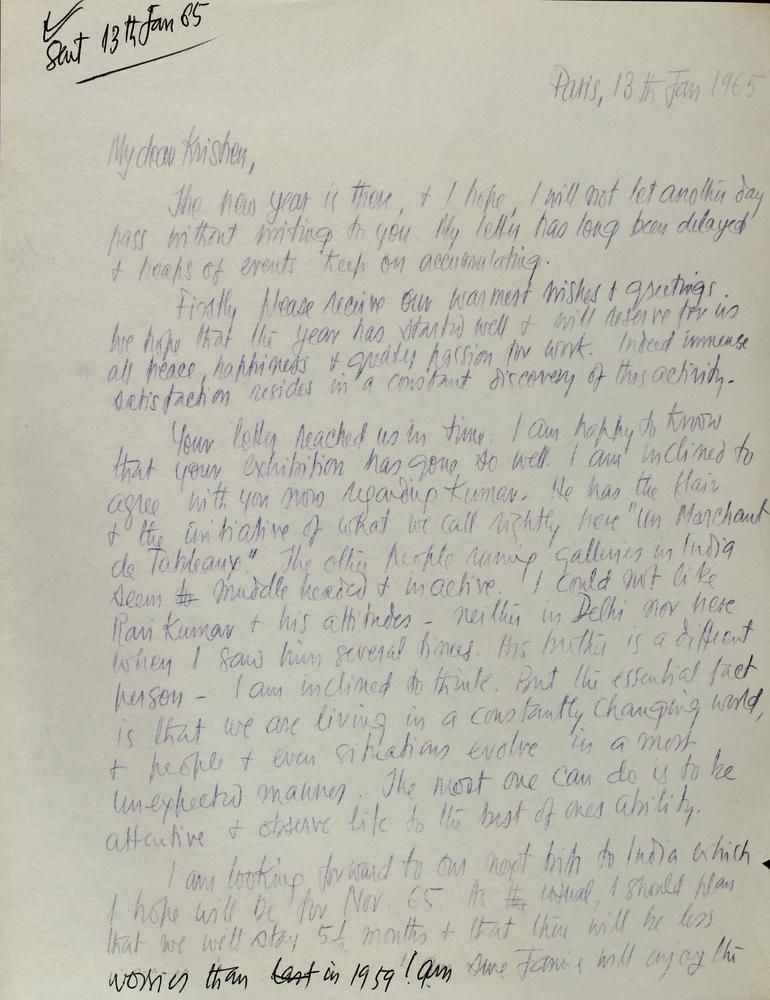 Sent 13th Jan 65
Paris, 13th Jan 1965
My dear Krishen,
The new year is there, & I hope, I will not let another day
pass without writing to you. My letter has long been delayed
& heaps of events keep on accumulating.
Firstly please receive our warmest wishes & greetings.
We hope that the year has started well & will reserve for us
all peace, happiness & greater passion for work. Indeed immense
satisfaction resides in a constant discovery of this activity.
Your letter reached us in time. I am happy to know
that your exhibition has gone so well. I am inclined to
agree with you now regarding Kumar. He has the flair
& the initiative of what we call rightly here "Un Marchant
de Tableaux." The other people running galleries in India
seem to muddle headed & inactive. I could not like
Ravi Kumar & his attitudes - neither in Delhi nor here
when I saw him several times. His brother is a different
person - I am inclined to think. But the essential fact
is that we are living in a constantly changing world,
& people & even situations evolve in a most
unexpected manner. The most one can do is to be
attentive & observe life to the best of ones ability.
I am looking forward to our next trip to India which
I hope will be for Nov. 65. As the usual, I should plan
that we will stay 5½ months & that there will be less
worries than last in 1959! I am sure Janine will enjoy the